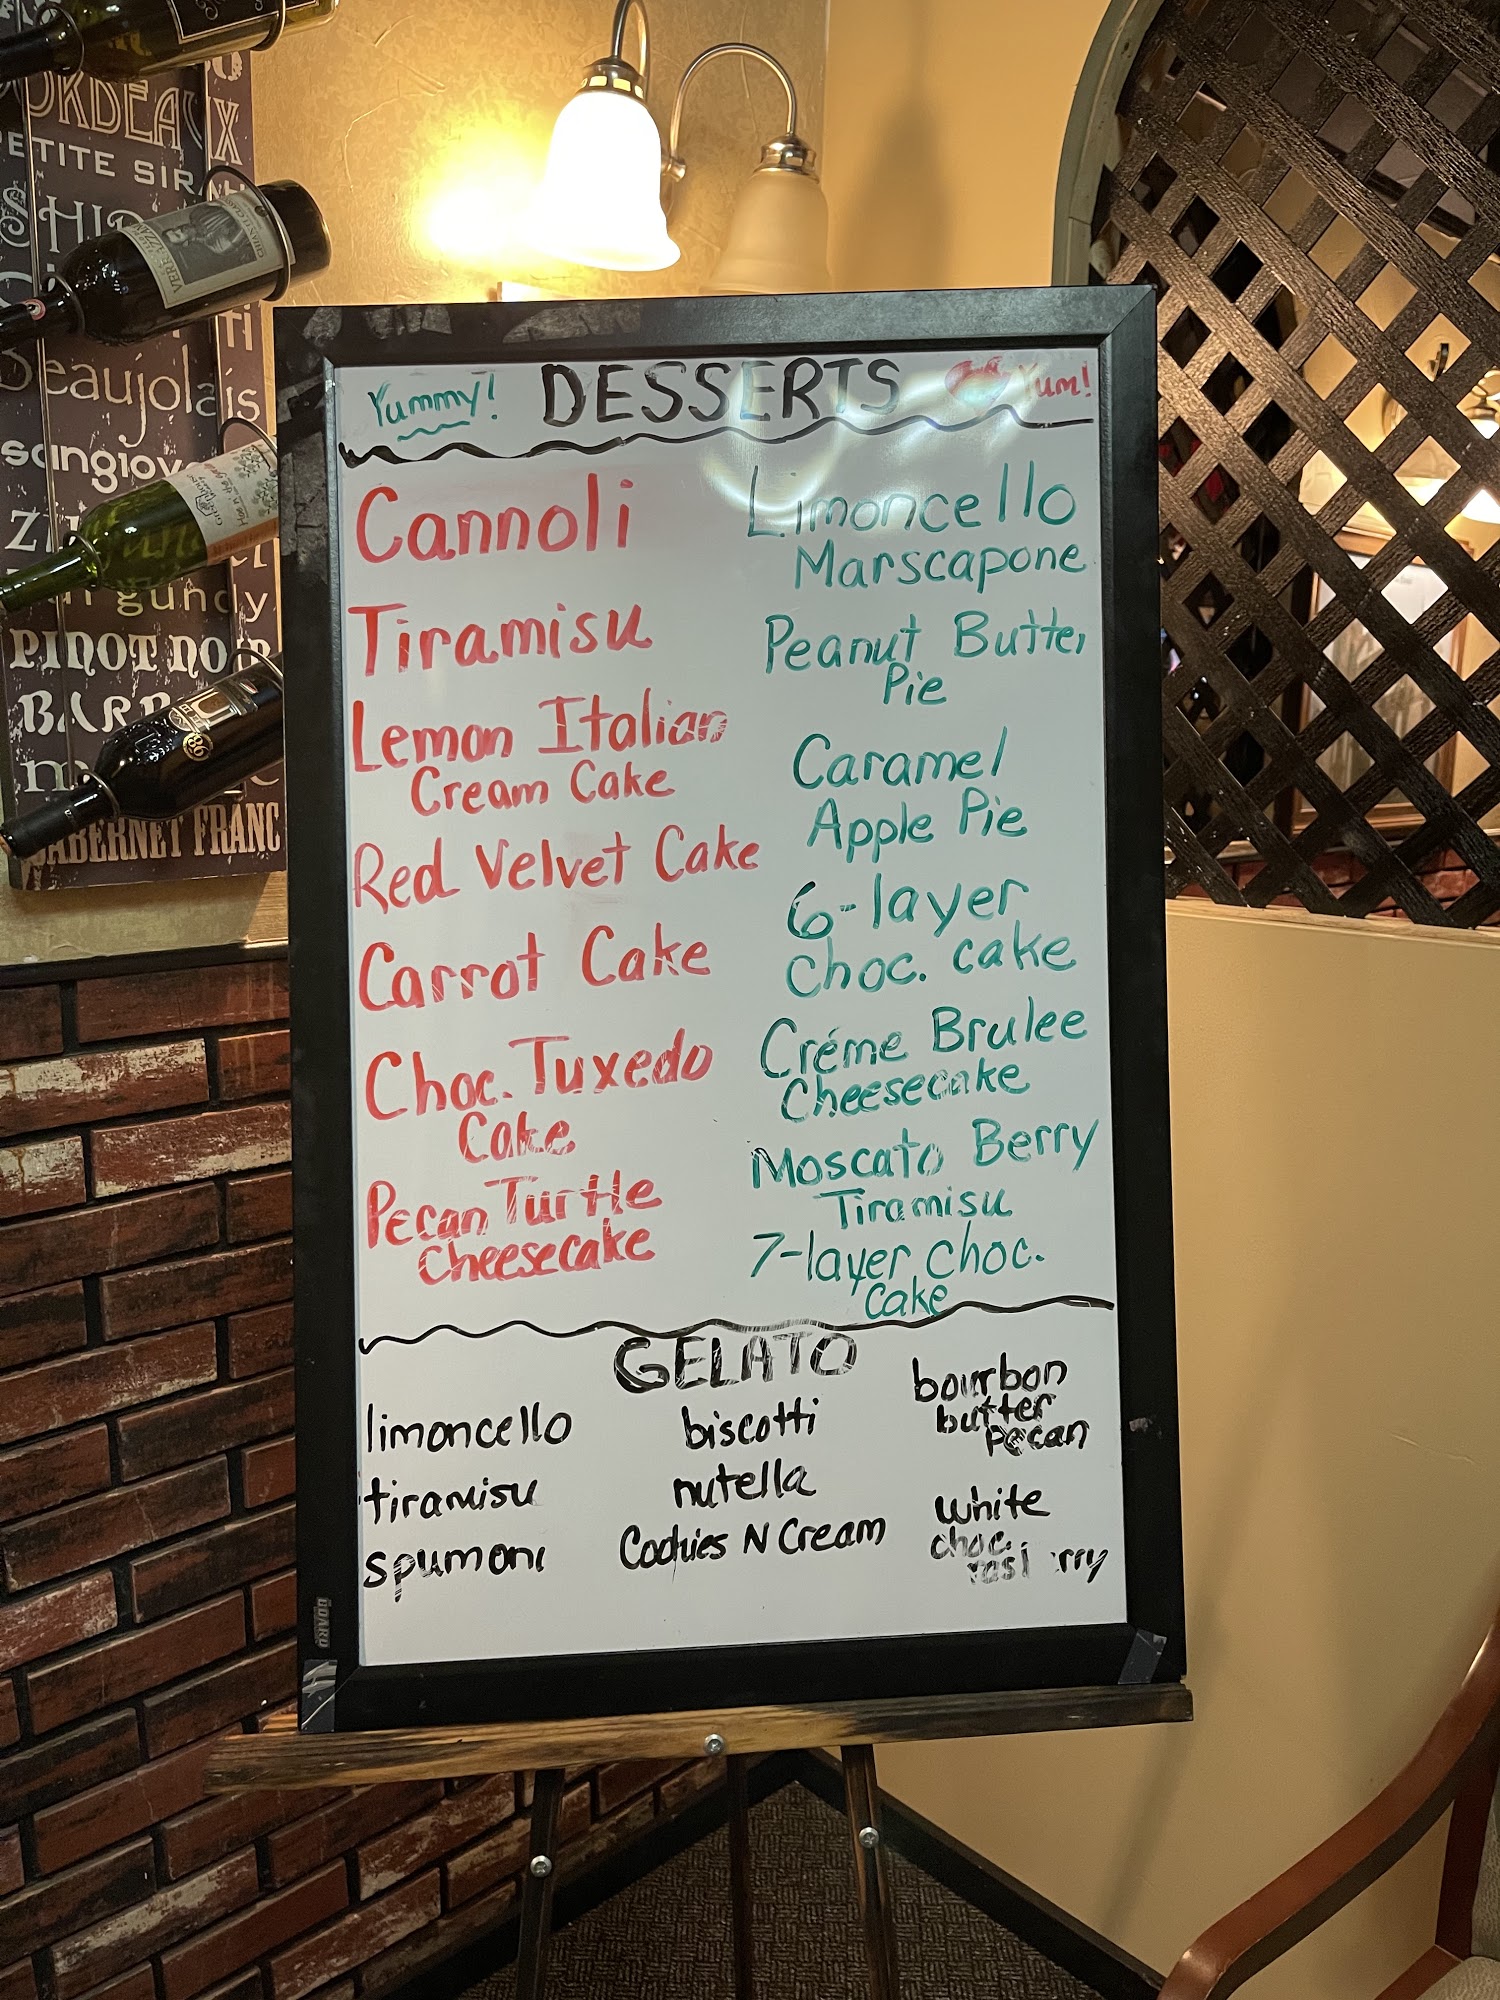 ORDEAUX
PETITE SIRAH
Beaujolais
sangiov
gundy
PINOT NOIR
CABERNET FRANC
CHIANTI CLASSI
98
Yummy! DESSERTS Yum!
Cannoli
Tiramisu
Lemon Italian
Cream Cake
Red Velvet Cake
Carrot Cake
Choc. Tuxedo
Cake
Pecan Turtle
Cheesecake
Limoncello
Marscapone
Peanut Butter
Pie
Caramel
Apple Pie
6-layer
choc. cake
Créme Brulee
Cheesecake
Moscato Berry
Tiramisu
7-layer choc.
cake
GELATO
limoncello
tiramisu
spumoni
biscotti
nutella
Cookies N Cream
bourbon
butter
pecan
white
choc.
rasberry
BOARD